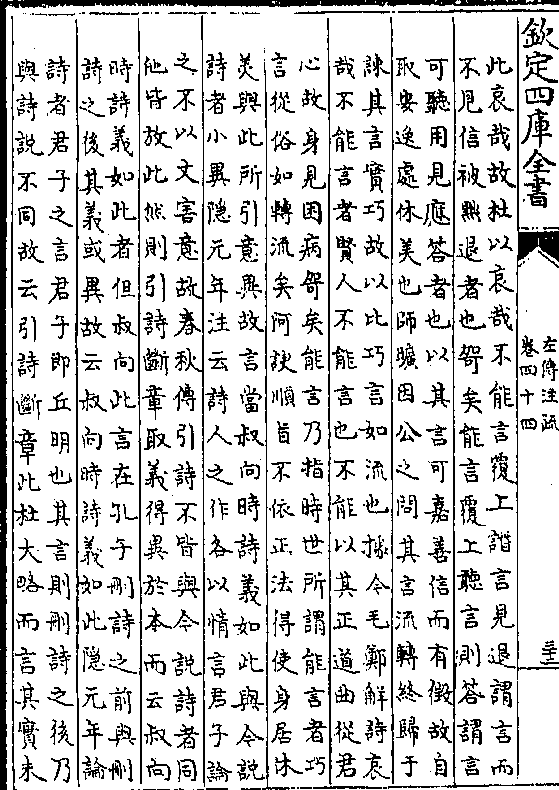 欽定四庫全書
左傳注疏
卷四十四
三三
此哀哉故杜以哀哉不能言覆上譖言見退謂言而
不見信被黜退者也哿矣能言覆上聽言則答謂言
可聽用見應答者也以其言可嘉善信而有徵故自
取安逸處休美也師曠因公之問其言流轉終歸于
諫其言實巧故以比巧言如流也據今毛鄭解詩哀
哉不能言者賢人不能言也不能以其正道曲從君
心故身見困病哿矣能言乃指時世所謂能言者巧
言從俗如轉流矣阿諛順旨不依正法得使身居休
美與此所引意異故言當叔向時詩義如此與今說
詩者小異隱元年注云詩人之作各以情言君子論
之不以文害意故春秋傳引詩不皆與今說詩者同
他皆放此然則引詩斷章取義得異於本而云叔向
時詩義如此者但叔向此言在孔子刪詩之前與刪
詩之後其義或異故云叔向時詩義如此隱元年論
詩者君子之言君子即丘明也其言則刪詩之後乃
與詩說不同故云引詩斷章此杜大略而言其實未